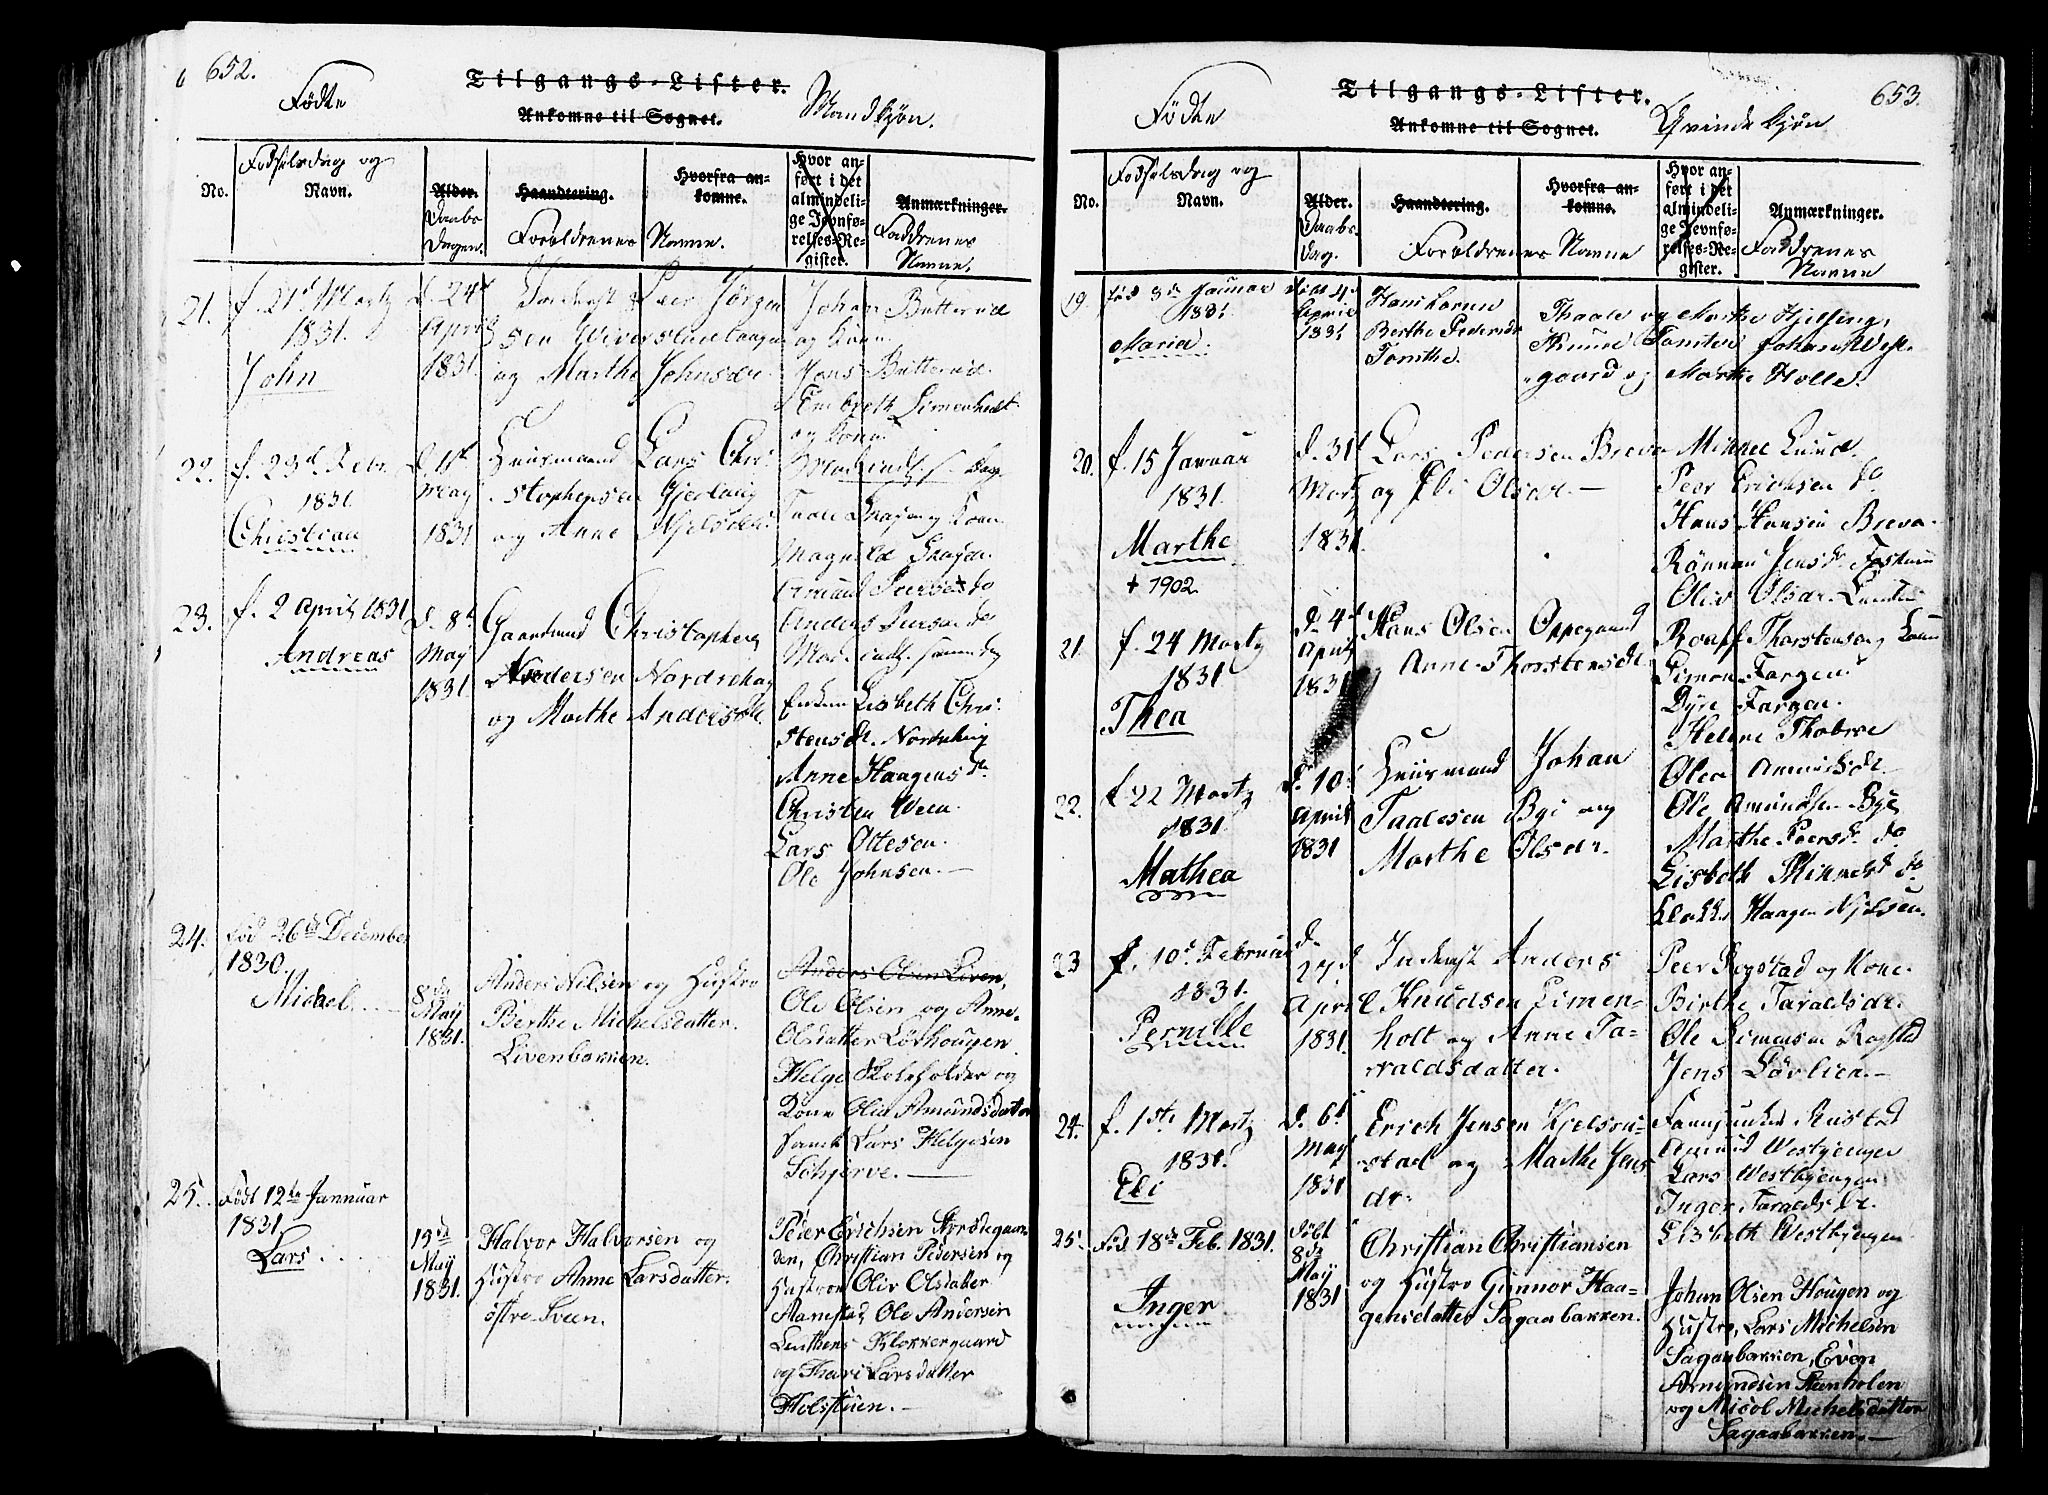 652.
Fødte
Tilgangs-Lister.
Ankomne til Sognet.
Mandkjøn.
No.
Fødselsdag og
Navn.
Alder.
Daabs
Dagen.
Haandtering.
Hvorfra an-
komne.
Forældrenes Navne.
Hvor an-
ført i det
almindeli-
ge Jevnfø-
relses-Re-
gister.
Anmærkninger.
Faddrenes
Navne.
21.
f. 21de Martz
1831.
John
d. 24d
April
1831.
Peer Jørgen
sen
og Marthe Johnsdr.
Johan Butterud
og Kone.
Hans Butterud.
Embreth Simenhodt
og Kone
22.
f. 23d Febr.
1831
Christian
d. 1t
May
1831
Huusmand Lars Chri-
stophersen Gjerlaug
og Anne Njelsdr.
Taale og Kone
Magnild
Amund do
Anders do
23.
f. 2 April 1831
Andreas
d. 8d
May
1831
Gaardmand Christopher
Andersen Nordrehag
og Marthe Andersdr.
Enken Lisbeth Chri-
stensdr. Nordrehag
Anne Haagensdr
Christen Veen.
Lars Ottesen.
Ole Johnsen.
24.
fød 26de December
1830.
Michel.
8de
May
1831.
Anders Nilsen og Hustro
Berthe Michelsdatter.
Livenbakken.
Anders Olsen Liven,
Ole Olsen og Anne
Olsdatter Lørhougen
Helge Skoleholder og
Kone Olia Amundsdatter
samt Lars Helgesen
Schjerve.
25.
Født 12te Januar
1831.
Lars.
15de
May
1831.
Halvor Halvorsen og
Hustro Anne Larsdatter.
østre Sveen.
Peder Erichsen Strødegaar-
den, Christian Pedersen og
Hustroe Oliv Olsdatter
Stamstad, Ole Andersen
Lenthens Klokkergaard
og Thari Larsdatter
Holstuen.
653.
Fødte
Tilgangs-Lister.
Ankomne til Sognet.
Qvindekjøn
No.
Fødselsdag og
Navn.
Alder.
Daabs
Dag.
Haandtering.
Hvorfra an-
komne.
Forældrenes Navne
Hvor an-
ført i det
almindeli-
ge Jevnfø-
relses-Re-
gister.
Anmærkninger.
Faddrenes
Navne
19.
fød 3de Januar
1831
Maria.
den 4d
April
1831
Hans Larsen
Berthe Pedersdr
Tomthe.
Thale og Marthe Hjelseng,
Knud Tomten Johan Vest-
gaard og Marthe Holle.
20.
f. 15 Januar
1831.
Marthe
+ 1902.
d. 31t
Martz
1831.
Lars Pedersen Breva
og Eli Olsdr.
Mikkel Lund.
Peer Erichsen do
Hans Hansen Breva.
Rønnau Jensdr
Oliv Olsdr.
21.
f. 24 Martz
1831
Thea
d. 4d
April
1831
Hans Olsen Oppegaard
og Anne Thorstensdr
Roaff Thorstensen og Kone
Simon Fargen
Dyre Fargen.
Helene Thobroe
Olea Amundsdr.
22.
f. 22 Martz
1831.
Mathea
d. 10d
April
1831
Huusmand Johan
Taalesen Bye og
Marthe Olsdr.
Ole Amundsen Bye
Marthe Peersdr do
Lisbeth do
Klokker Haagen Njelsen.
23
f. 10d Februar
1831.
Pernille
d.
24d
April
1831.
Inderst Anders
Knudsen Simen-
holt og Anne Ta-
raldsdatter.
Peer Rogstad og Kone.
Birthe Taraldsdr.
Ole Simensen Rogstad
Jens Løvlien.
24.
f. 1ste Martz
1831.
Eli
d. 6d
May
1831
Erich Jensen Kjelsru-
stad og Marthe Jens
dr.
Rustad
Amund Westbyengen
Lars Westbyengen
Inger Taraldsdr.
Elisbeth Westbyengen
25.
Fød 18de Feb. 1831.
Inger.
Døbt
8de
May
1831
Christian Christiansen
og Hustro Gunnor Haa-
gensdatter Sagaabakken.
Johan Olsen Hougen og
Hustro, Lars Michelsen
Sagaabakken, Even
Amundsen Steenholen
og Nicol Michelsdatter
Sagaabakken.